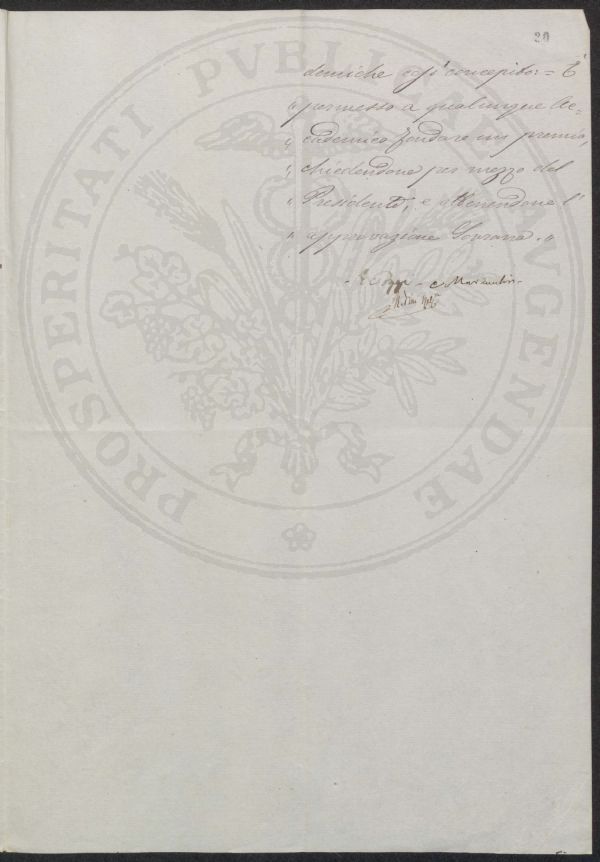 20
demiche così concepito: = È
" permesso a qualunque Ac-
" cademico fondare un premio,
" chiedendone per mezzo del
" Presidente, e ottenendone l'
" approvazione Sovrana. "
PROSPERITATI PVBLICAE AVGENDAE